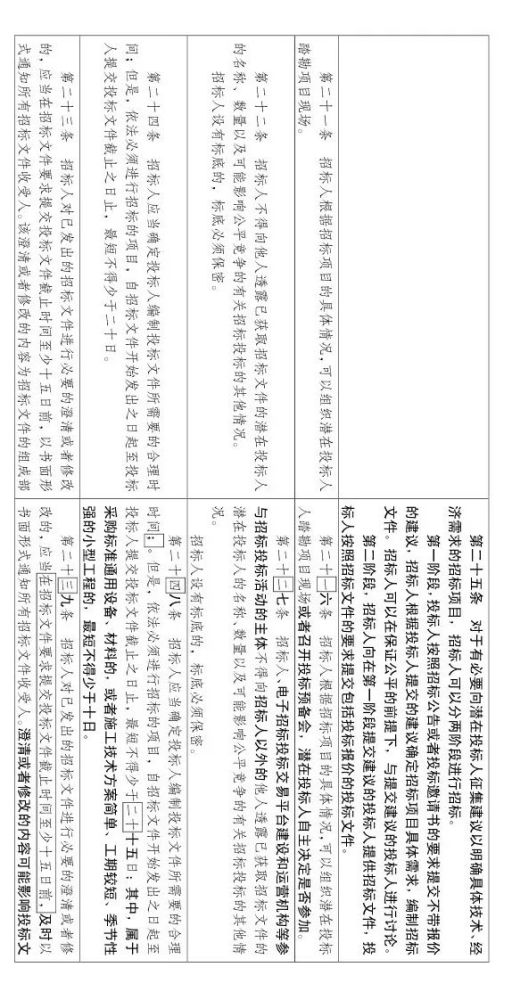 第二十五条 对于有必要向潜在投标人征集建议以明确具体技术、经
济需求的招标项目，招标人可以分两阶段进行招标。
第一阶段，投标人按照招标公告或者投标邀请书的要求提交不带报价
的建议，招标人根据投标人提交的建议确定招标项目具体需求，编制招标
文件。招标人可以在保证公平的前提下，与提交建议的投标人进行讨论。
第二阶段，招标人向在第一阶段提交建议的投标人提供招标文件，投
标人按照招标文件的要求提交包括投标报价的投标文件。
第二十一条 招标人根据招标项目的具体情况，可以组织潜在投标人
踏勘项目现场。
第二十一六条 招标人根据招标项目的具体情况，可以组织潜在投标
人踏勘项目现场或者召开投标预备会，潜在投标人自主决定是否参加。
第二十二条 招标人不得向他人透露已获取招标文件的潜在投标人
的名称、数量以及可能影响公平竞争的有关招标投标的其他情况。
招标人设有标底的，标底必须保密。
第二十二七条 招标人、电子招标投标交易平台建设和运营机构等参
与招标投标活动的主体不得向招标人以外的他人透露已获取招标文件的
潜在投标人的名称、数量以及可能影响公平竞争的有关招标投标的其他情
况。
招标人设有标底的，标底必须保密。
第二十四条 招标人应当确定投标人编制投标文件所需要的合理时
间；但是，依法必须进行招标的项目，自招标文件开始发出之日起至投标
人提交投标文件截止之日止，最短不得少于二十日。
第二十四八条 招标人应当确定投标人编制投标文件所需要的合理
时间；。但是，依法必须进行招标的项目，自招标文件开始发出之日起至
投标人提交投标文件截止之日止，最短不得少于二十十五日；其中，属于
采购标准通用设备、材料的，或者施工技术方案简单、工期较短、季节性
强的小型工程的，最短不得少于十日。
第二十三条 招标人对已发出的招标文件进行必要的澄清或者修改
的，应当在招标文件要求提交投标文件截止时间至少十五日前，以书面形
式通知所有招标文件收受人。该澄清或者修改的内容为招标文件的组成部
第二十三九条 招标人对已发出的招标文件进行必要的澄清或者修
改的，应当在招标文件要求提交投标文件截止时间至少十五日前，及时以
书面形式通知所有招标文件收受人。澄清或者修改的内容可能影响投标文